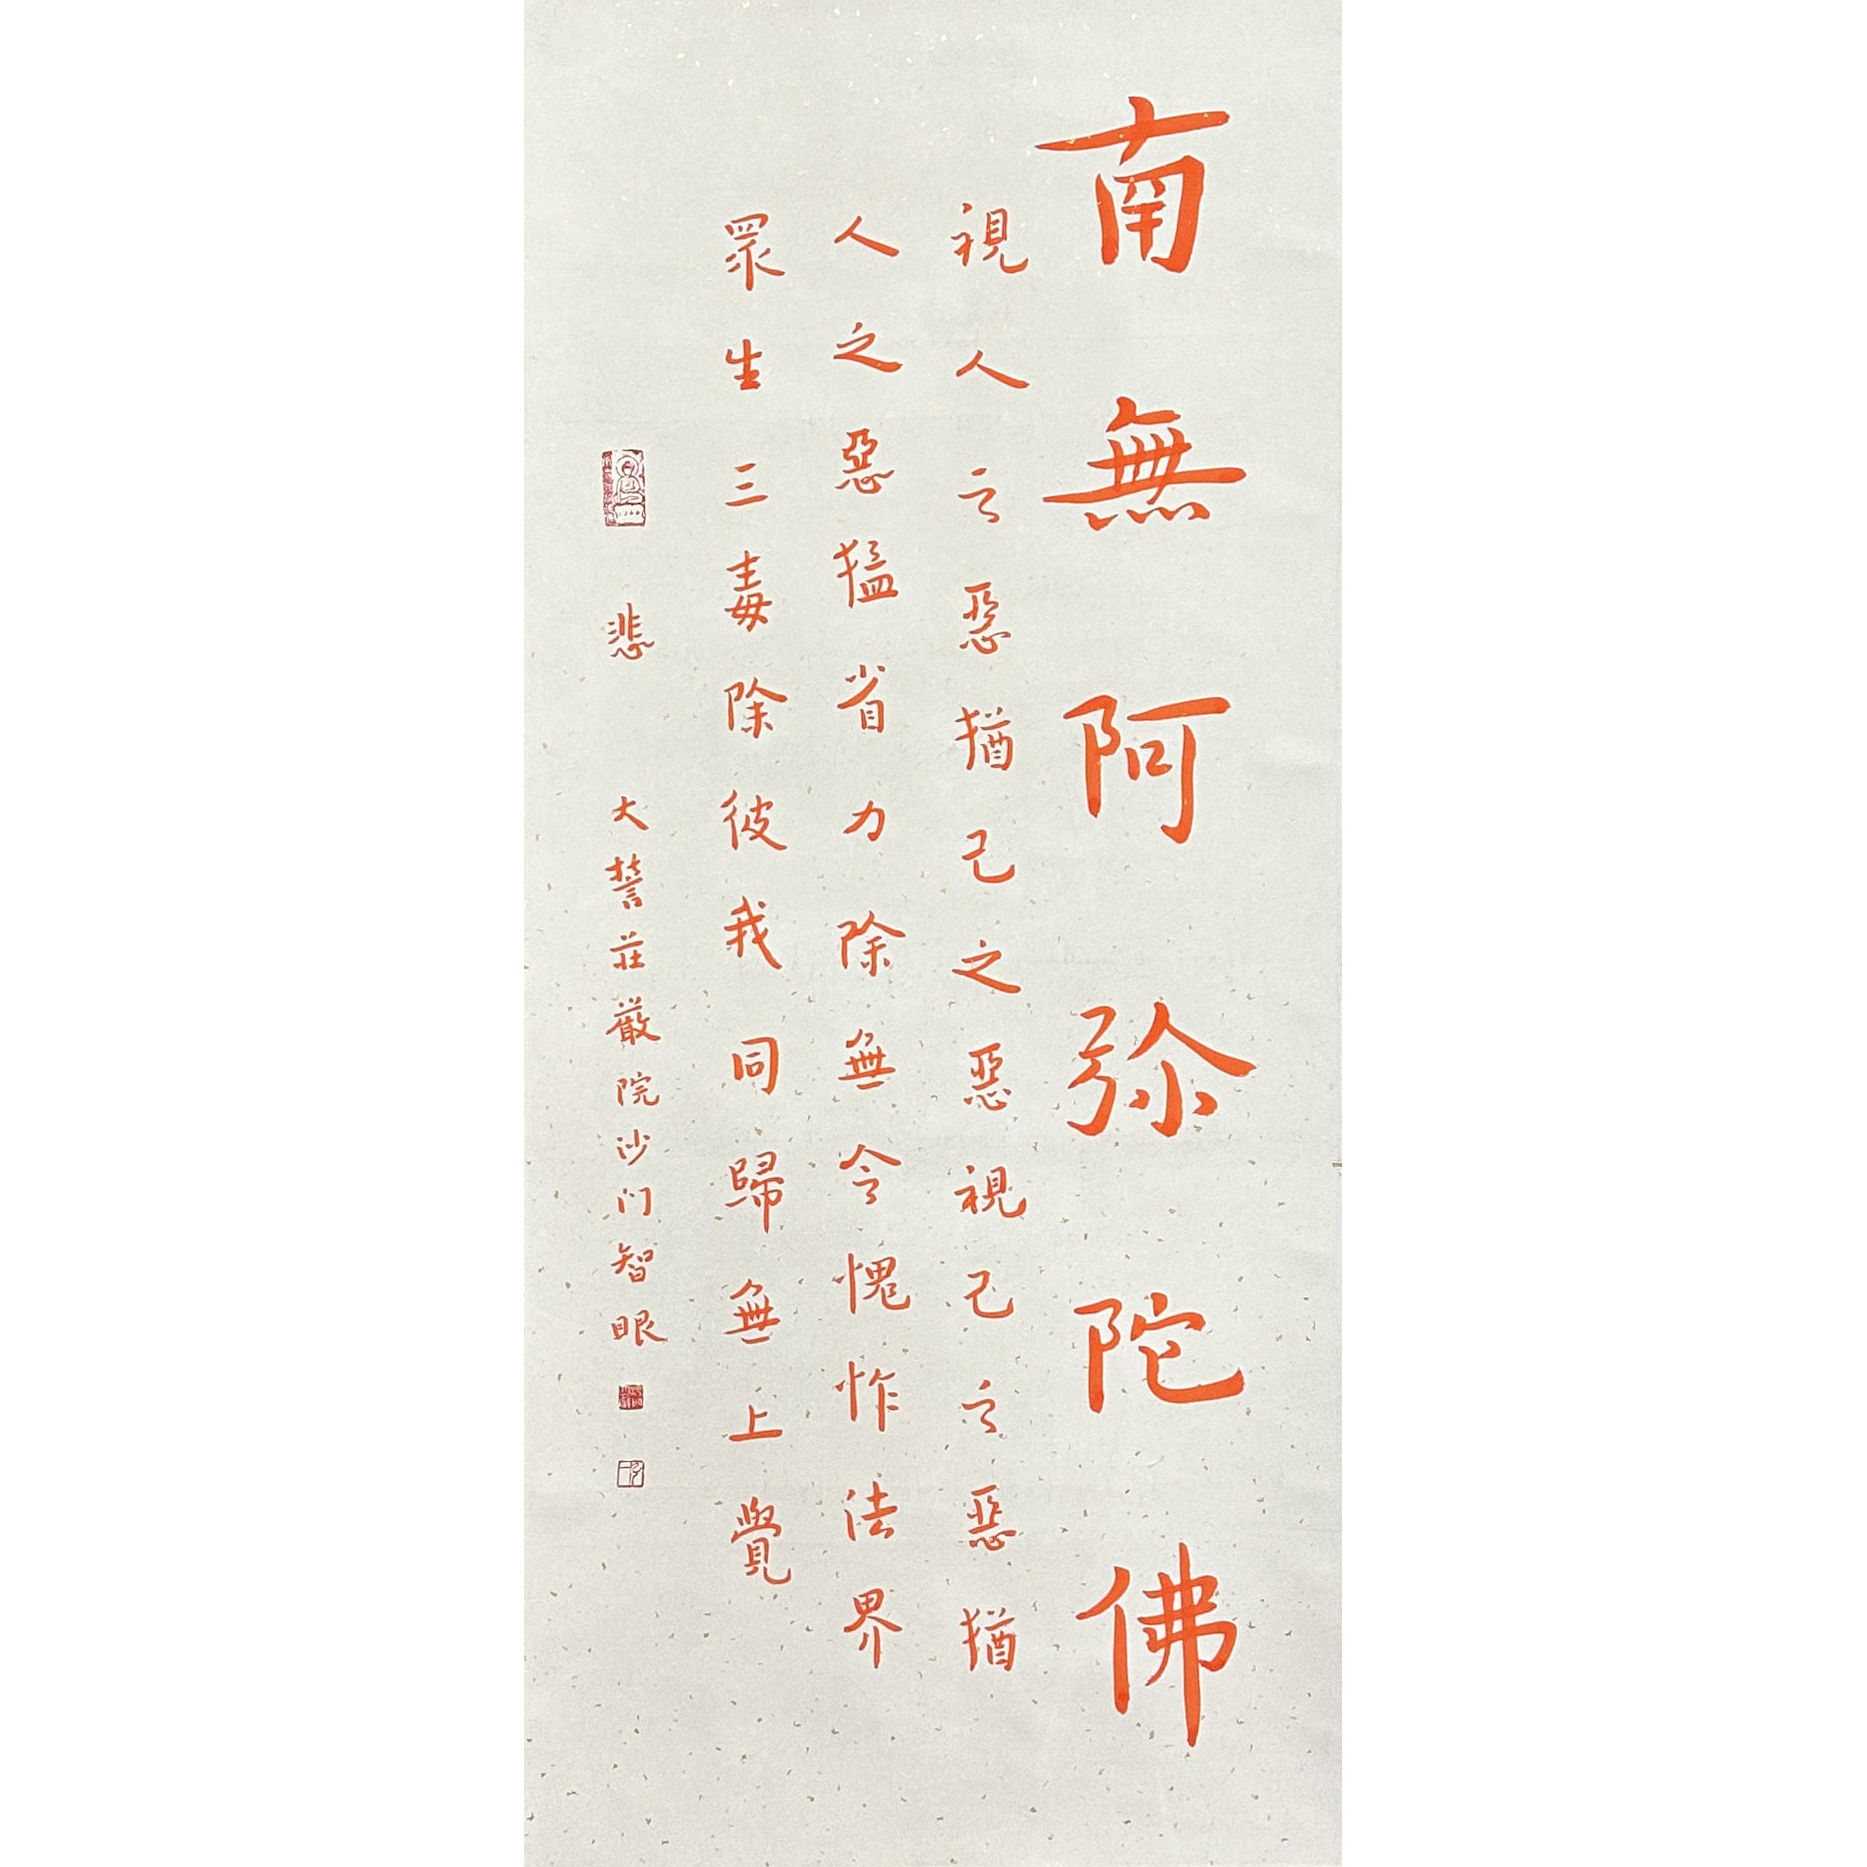 南無阿弥陀佛
視人之惡猶己之惡視己之惡猶
人之惡猛省力除無令愧怍法界
眾生三毒除彼我同歸無上覺
悲 大誓莊嚴院沙门智眼